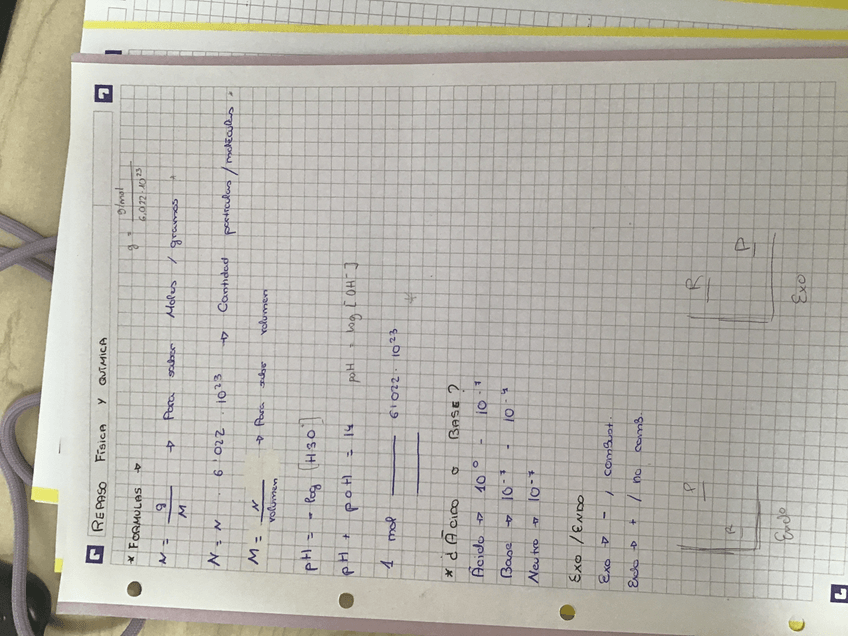 REPASO FÍSICA Y QUÍMICA
* FORMULAS →
g = g/mol / 6.022·10²³
N = g / M → Para saber Moles / gramos
N = N . 6'022 . 10²³ → Cantidad partículas/moléculas.
M = N / volumen → Para saber volumen
pH = - log [H3O⁺]
pH + pOH = 14
pOH = log [OH⁻]
1 mol 6'022 . 10²³
* ¿ÁCIDO O BASE?
Ácido → 10⁰ - 10⁻⁷
Base → 10⁻⁷ -
Neutro → 10⁻⁷
EXO / ENDO
Exo → - / combust.
Endo → + / no comb.
R P
Endo
R P
Exo